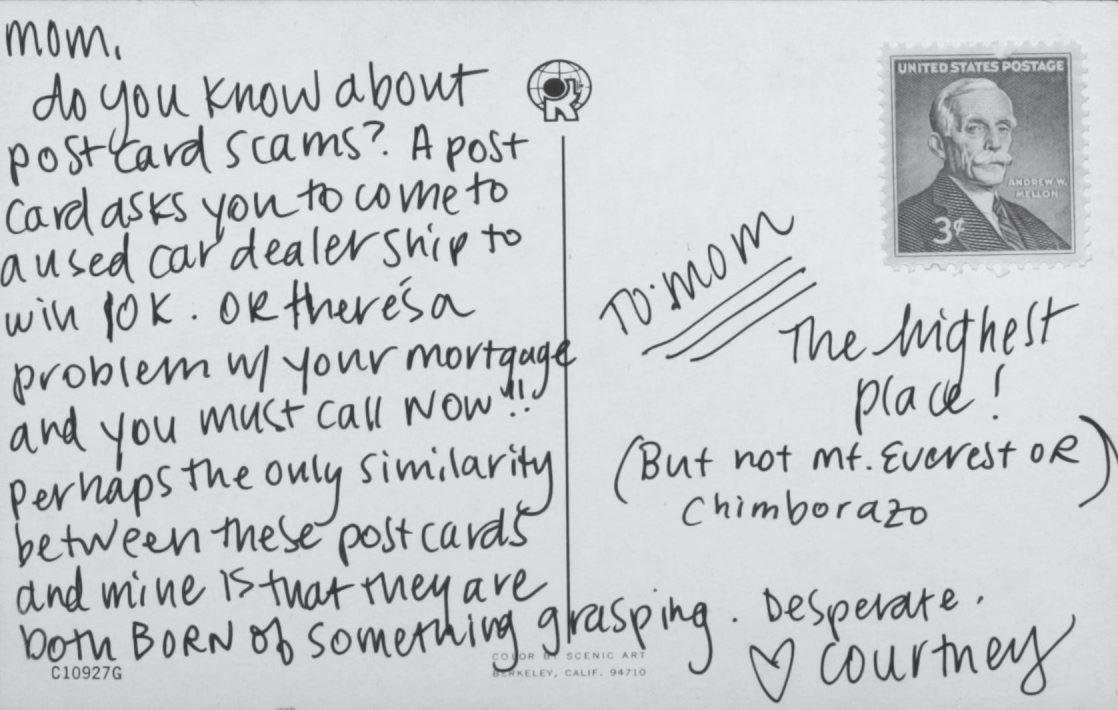 mom,
do you know about
postcard scams? A post
card asks you to come to
a used car dealership to
win 10K. OR there's a
problem w/ your mortgage
and you must call NOW!!
Perhaps the only similarity
between these postcards
and mine is that they are
both BORN of something grasping. Desperate.
♡ courtney
C10927G
COLOR BY SCENIC ART
BERKELEY, CALIF. 94710
R
UNITED STATES POSTAGE
ANDREW W.
MELLON
3¢
TO: mom
The highest
place!
(But not mt. Everest OR
Chimborazo)